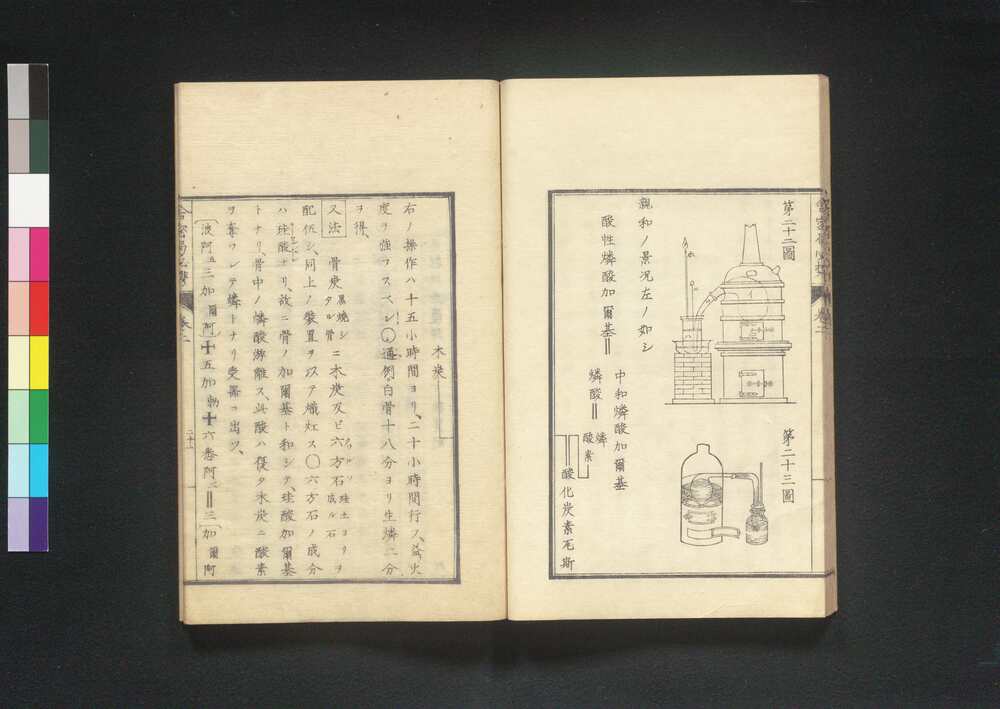 第二十二圖
第二十三圖
親和ノ景況左ノ如シ
酸性燐酸加爾基
中和燐酸加爾基
燐酸
燐
酸素
酸化炭素瓦斯
木炭
右ノ操作ハ十五小時間ヨリ、二十小時間行フ、益火
度ヲ強フスベシ〇通例白骨十八分ヨリ生燐二分
ヲ得、
又法 骨炭 黒燒シタル骨 ニ木炭及ビ六方石 珪土ヨリ成ル石 ヲ
配伍シ、同上ノ裝置ヲ以テ熾灼ス〇六方石ノ成分
ハ珪酸ナリ、故ニ骨ノ加爾基ト和シテ、珪酸加爾基
トナリ、骨中ノ燐酸游離ス、此酸ハ復タ木炭ニ酸素
ヲ奪ワレテ燐トナリ受器ニ出ツ、
三加爾阿
五加勃
六悉阿二
三
加爾阿